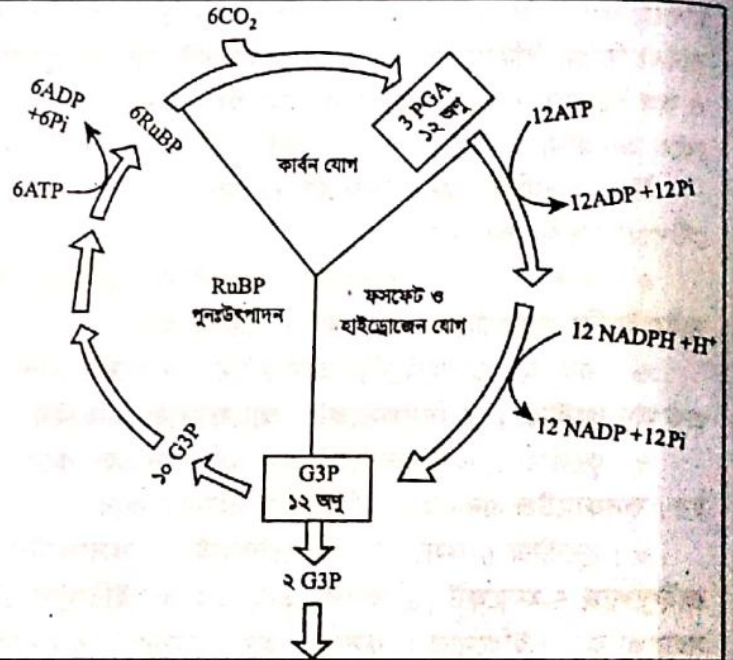 6CO₂
6ADP
+6Pi
6RuBP
6ATP
3 PGA
১২ অণু
12ATP
12ADP +12Pi
কার্বন যোগ
RuBP
পুনঃউৎপাদন
ফসফেট ও
হাইড্রোজেন যোগ
12 NADPH +H⁺
12 NADP +12Pi
১০ G3P
G3P
১২ অণু
২ G3P